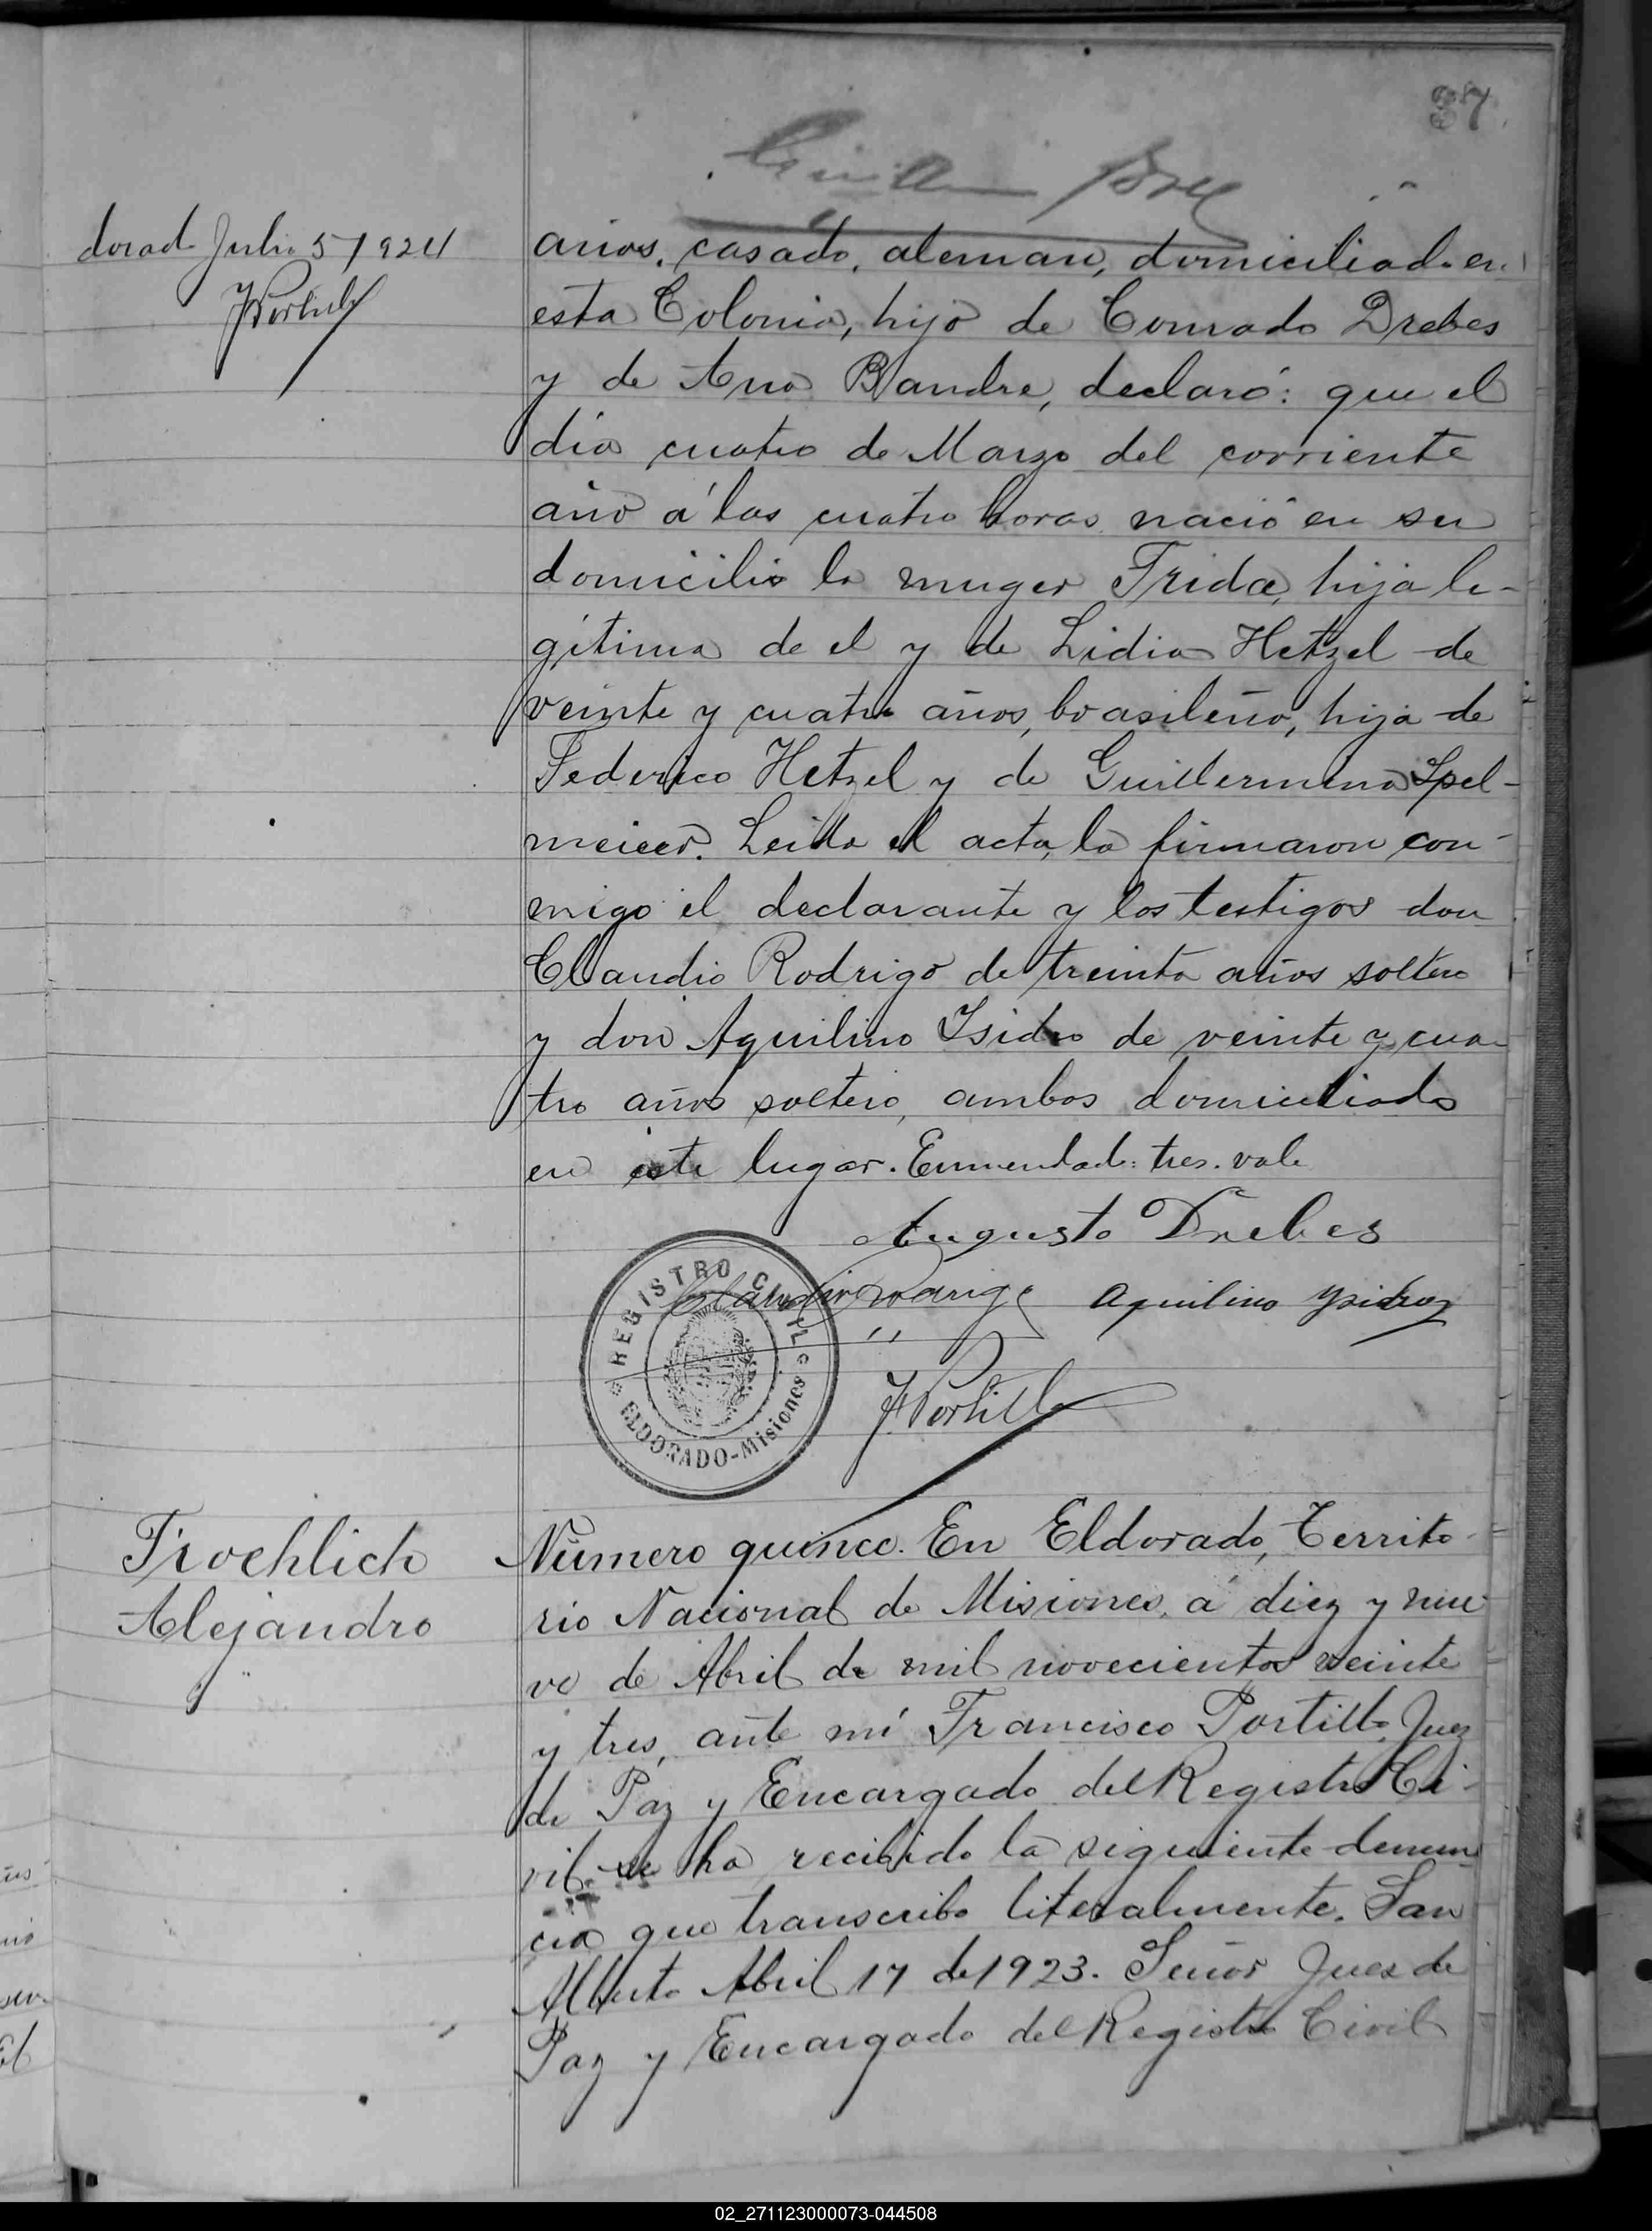 37
dorado Julio 5/1924
FPortillo
años, casado, aleman, domiciliado en
esta Colonia, hijo de Conrado Drebes
y de Ana Bandre, declaró: que el
día cuatro de Marzo del corriente
año á las cuatro horas nació en su
domicilio la muger Frida, hija le-
gitima de el y de Lidia Hetzel de
veinte y cuatro años, brasileña, hija de
Federico Hetzel y de Guillermina Spel-
meier. Leida el acta, la firmaron con-
migo el declarante y los testigos don
Claudio Rodrigo de treinta años soltero
y don Aquilino Isidro de veinte y cua-
tro años soltero, ambos domiciliados
en este lugar. Enmendado: tres. vale
Augusto Drebes
Claudio Rodrigo Aquilino Ysidro
REGISTRO CIVIL
ELDORADO-Misiones
FPortillo
Froehlich
Alejandro
Número quince. En Eldorado, Territo-
rio Nacional de Misiones, á diez y nue-
ve de Abril de mil novecientos veinte
y tres, ante mí Francisco Portillo, Juez
de Paz y Encargado del Registro Ci-
vil se ha recibido la siguiente denun-
cia que transcribo literalmente. San
Alberto Abril 17 de 1923. Señor Juez de
Paz y Encargado del Registro Civil
02_271123000073-044508